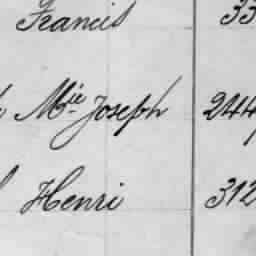 Francis 33
Mie Joseph 244
Henri 312